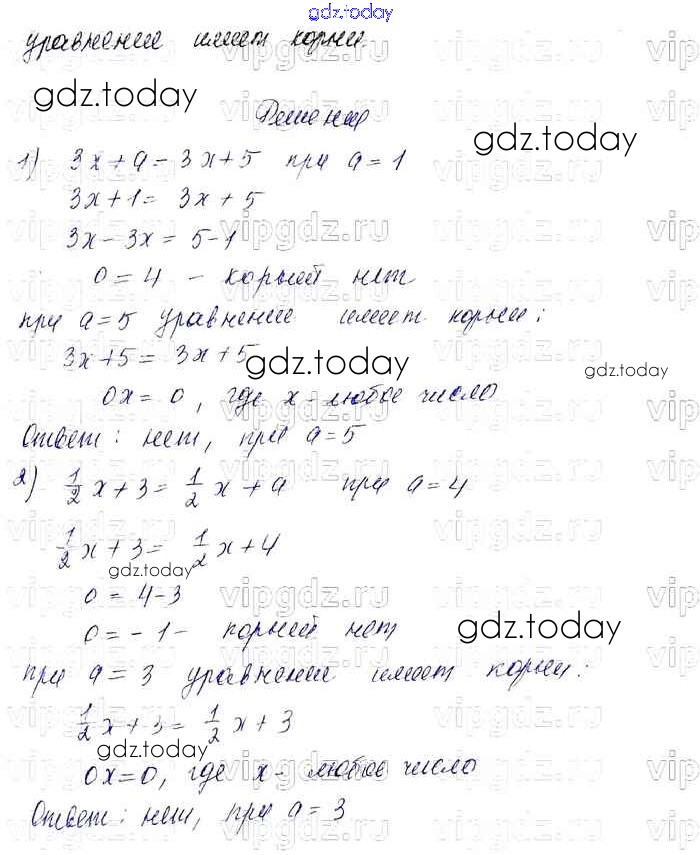 gdz.today
уравнение имеет корни
gdz.today
Решение
gdz.today
1) 3x + a = 3x + 5 при a = 1
3x + 1 = 3x + 5
vipgdz.ru
3x - 3x = 5 - 1
0 = 4 - корней нет
при a = 5 уравнение имеет корни:
3x + 5 = 3x + 5
gdz.today
gdz.today
0x = 0, где x - любое число
Ответ: нет, при a = 5
2) 1/2 x + 3 = 1/2 x + a при a = 4
1/2 x + 3 = 1/2 x + 4
gdz.today
0 = 4 - 3
0 = - 1 - корней нет
gdz.today
при a = 3 уравнение имеет корни:
1/2 x + 3 = 1/2 x + 3
gdz.today
0x = 0, где x - любое число
Ответ: нет, при a = 3